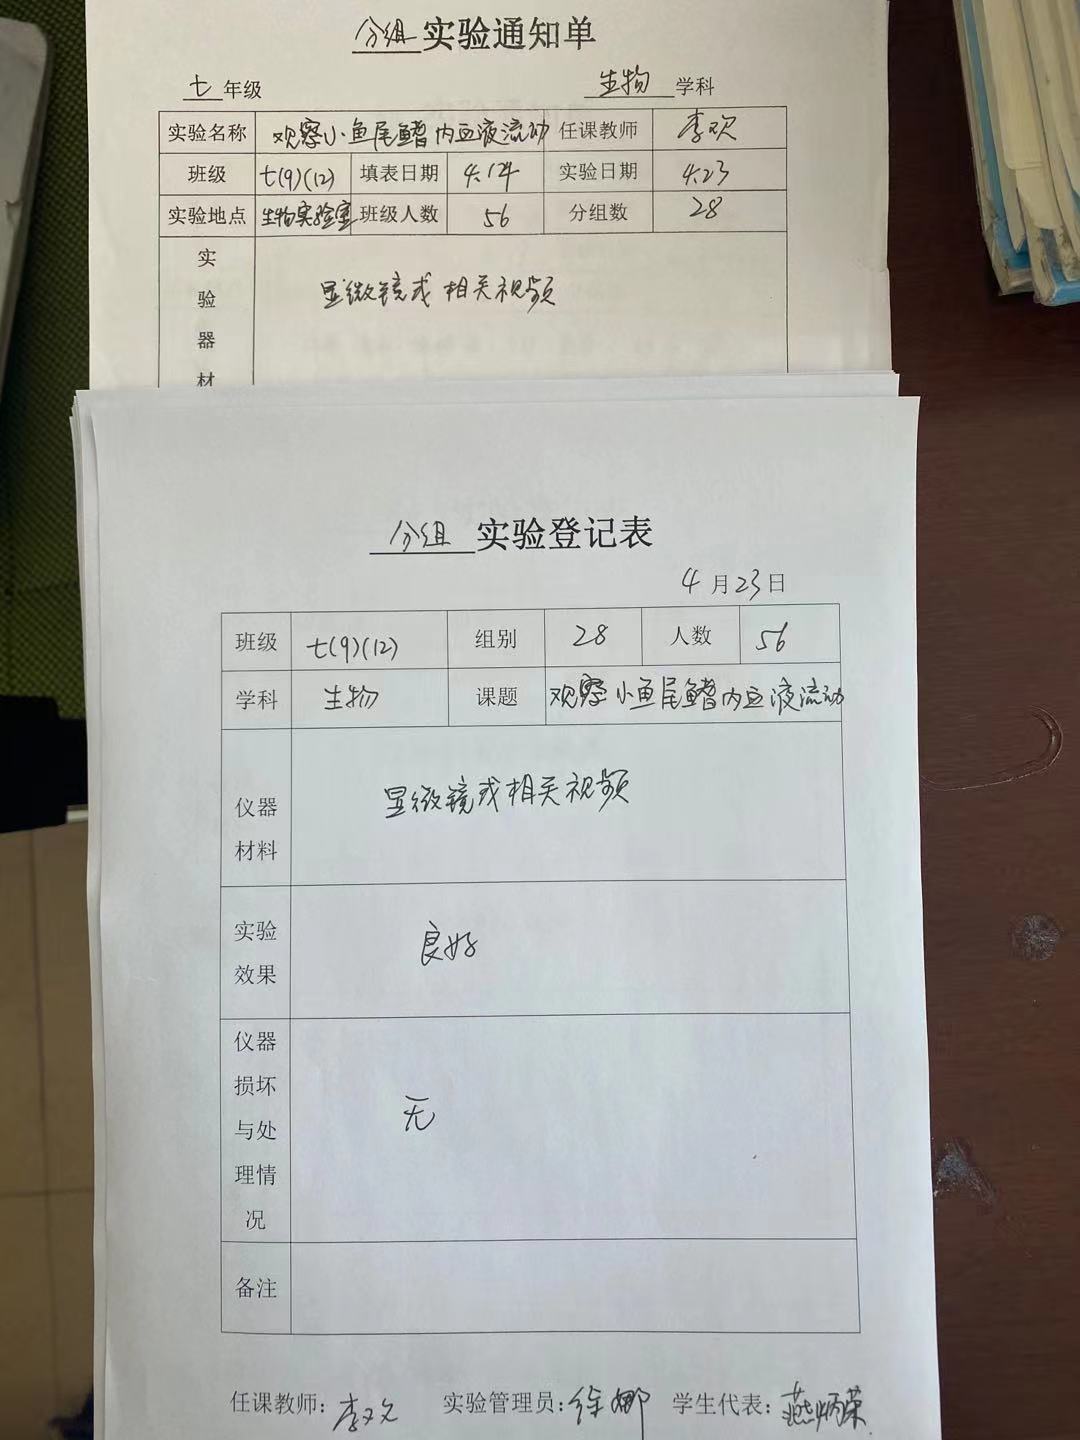 分组 实验通知单
七 年级 生物 学科
实验名称 观察小鱼尾鳍内血液流动 任课教师 李欢
班级 七(9)(12) 填表日期 4.14 实验日期 4.23
实验地点 生物实验室 班级人数 56 分组数 28
实
验
器
材
显微镜或相关视频
分组 实验登记表
4 月 23 日
班级 七(9)(12) 组别 28 人数 56
学科 生物 课题 观察小鱼尾鳍内血液流动
仪器
材料
显微镜或相关视频
实验
效果
良好
仪器
损坏
与处
理情
况
无
备注
任课教师: 李欢 实验管理员: 徐娜 学生代表: 燕炳荣